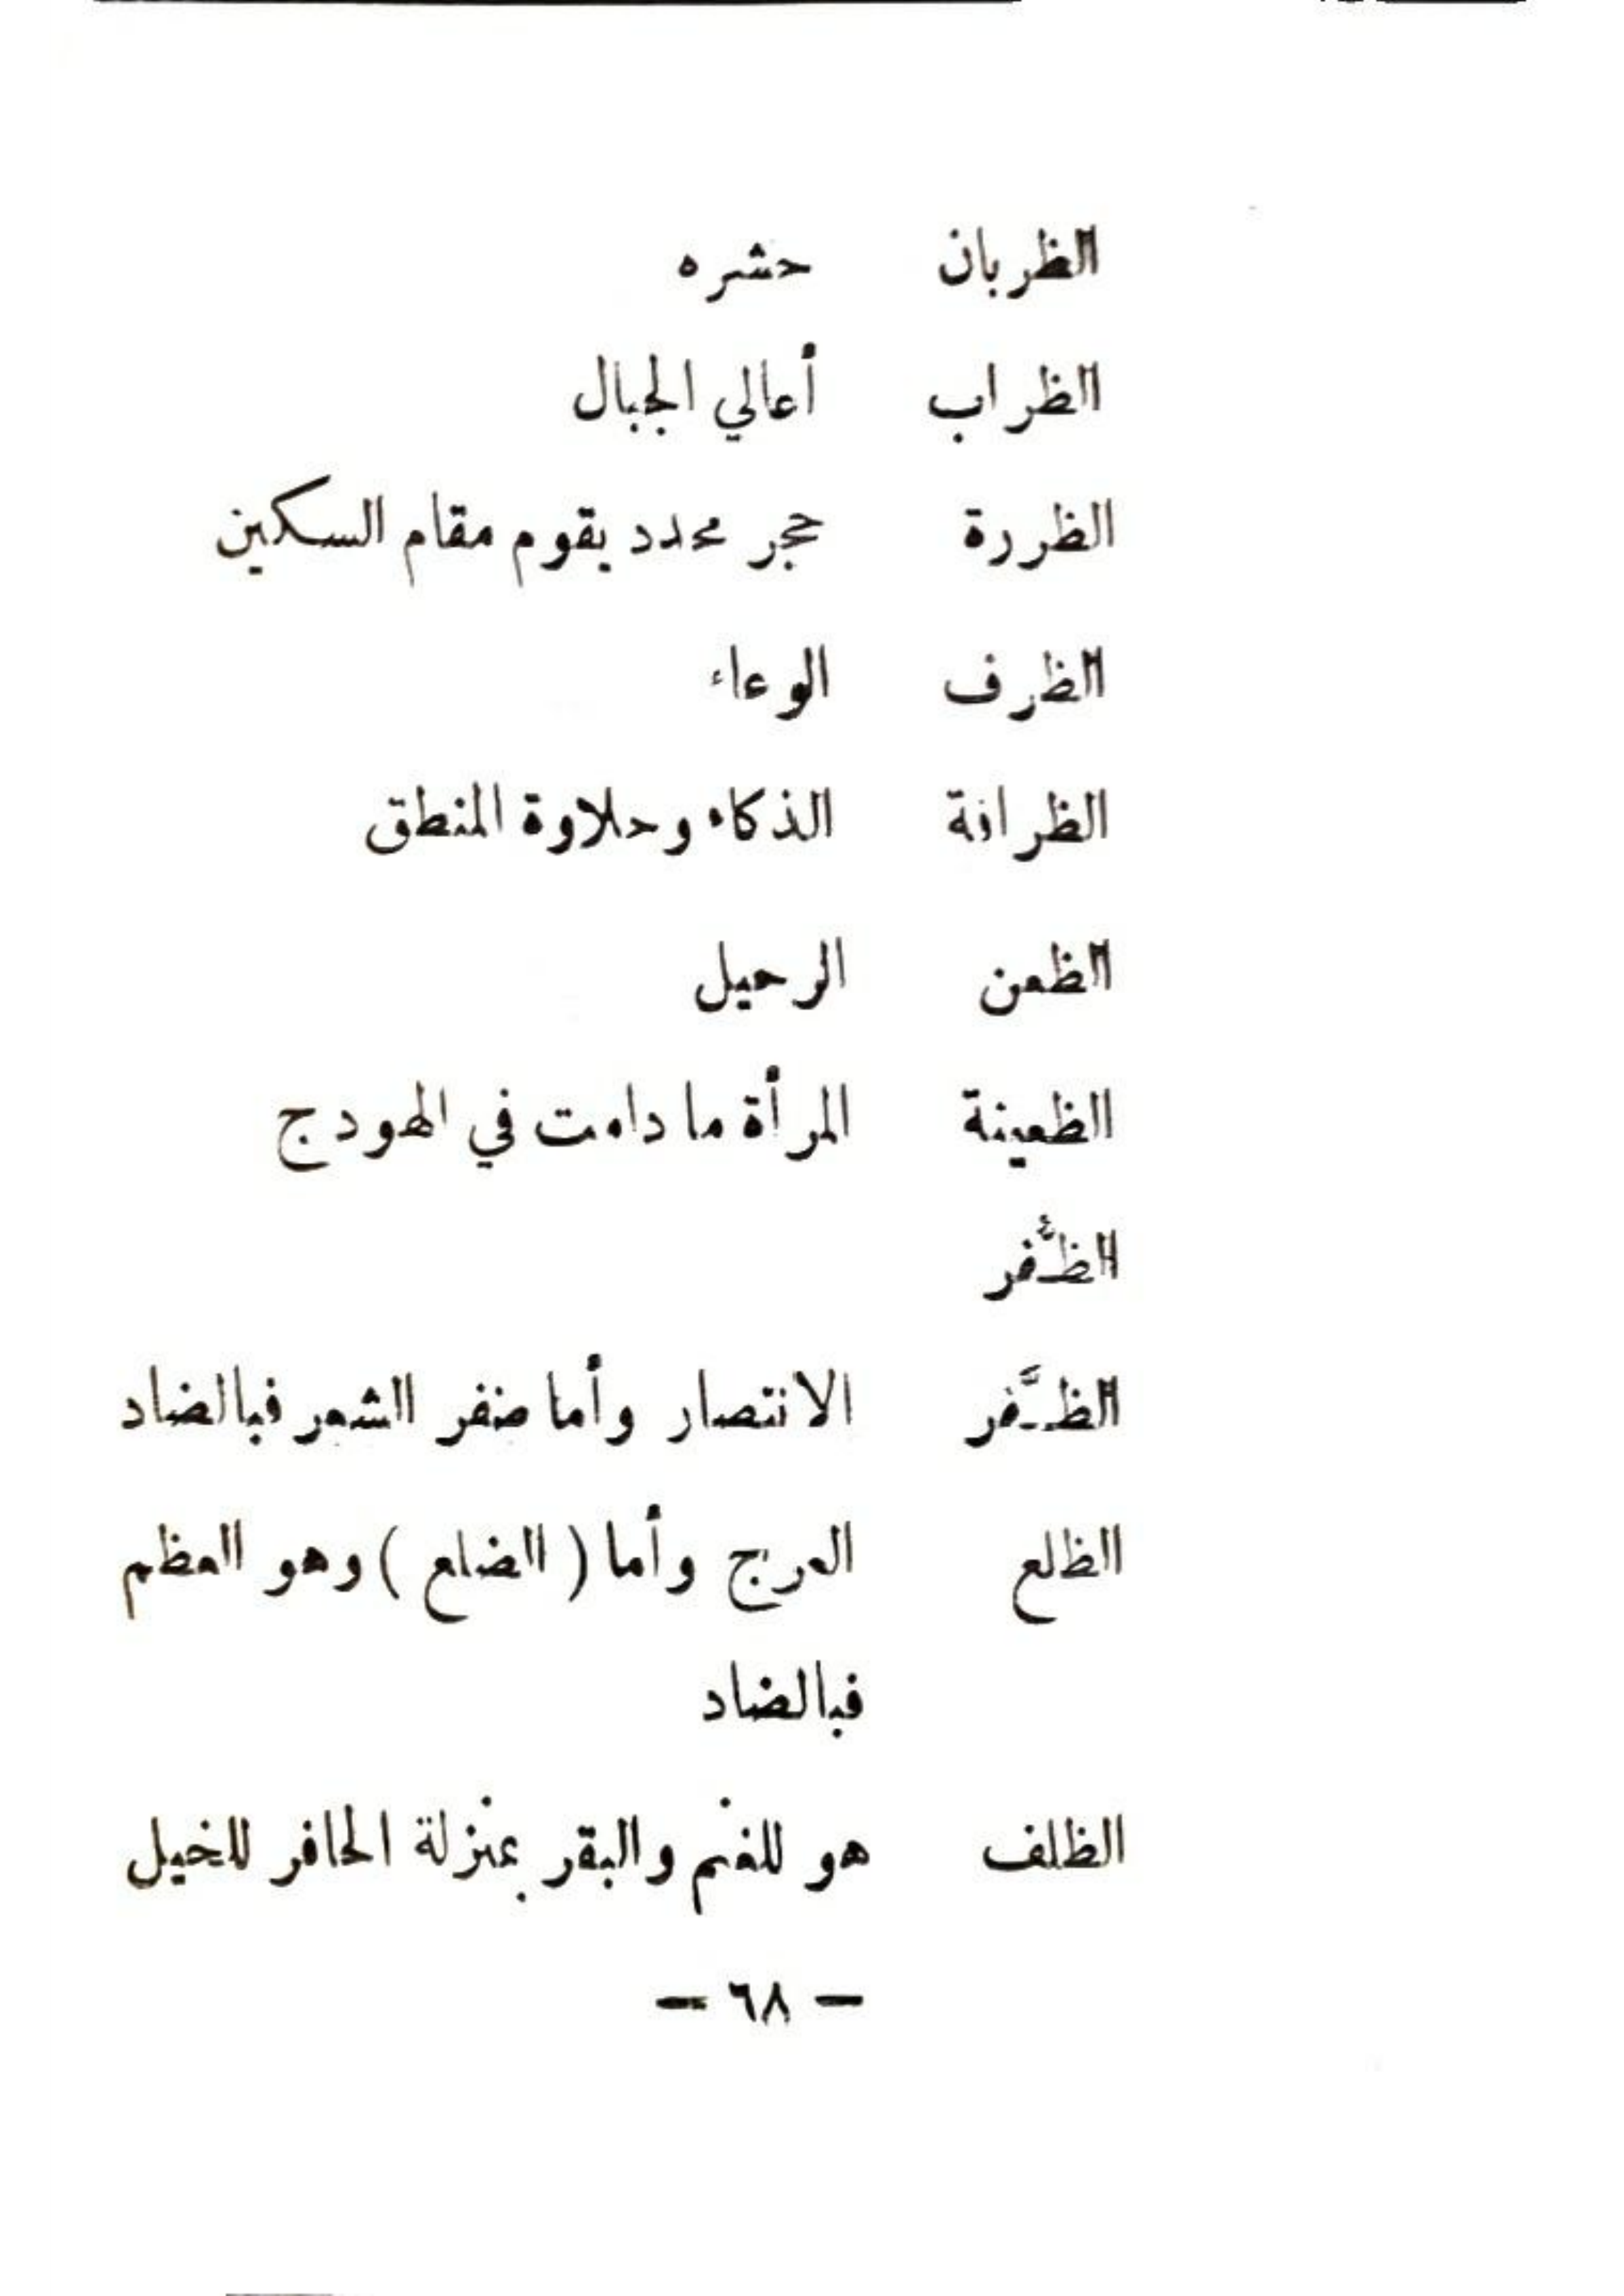 الظربان حشره
الظراب أعالي الجبال
الظررة حجر محدد يقوم مقام السكين
الظرف الوعاء
الظرافة الذكاء وحلاوة المنطق
الظعن الرحيل
الظعينة المرأة ما دامت في الهودج
الظُّفر
الظَّفر الانتصار وأما ضفر الشعر فبالضاد
الظلع العرج وأما ( الضلع ) وهو العظم
فبالضاد
الظلف هو للغنم والبقر بمنزلة الحافر للخيل
— ٦٨ —